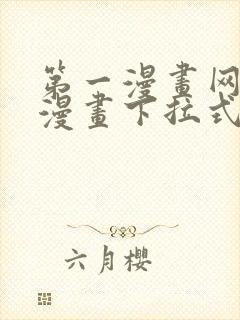 第一漫畫网
漫畫下拉式
六月櫻